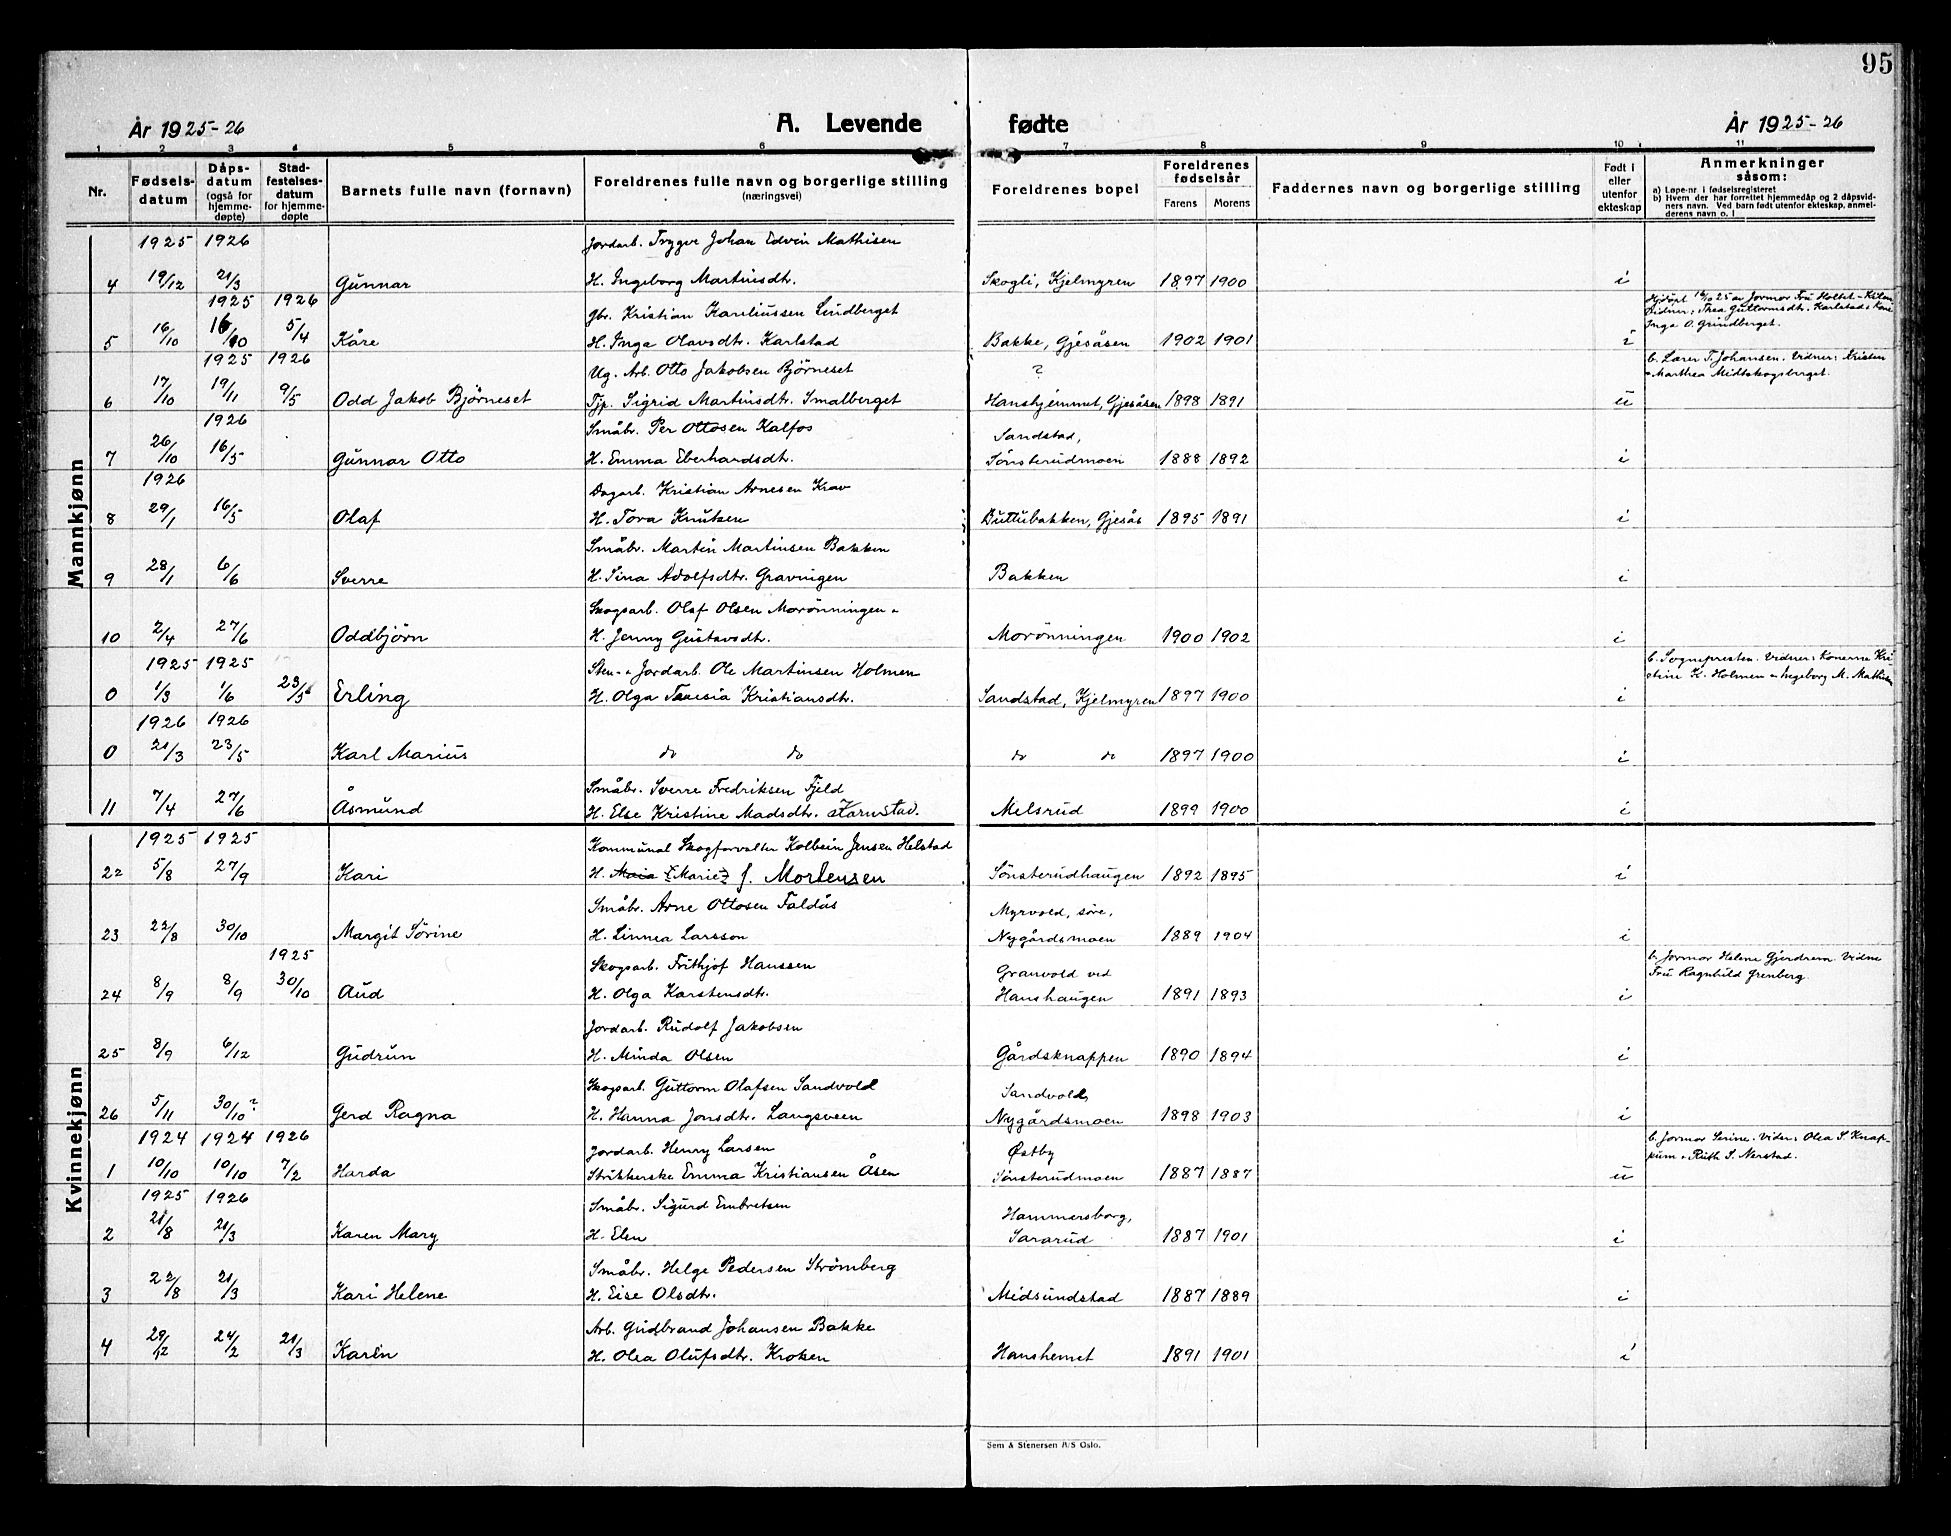 95
År 1925-26
A. Levende
fødte
År 1925-26
1 2 3 4 5 6 7 8 9 10 11
Nr.
Fødsels-
datum
Dåps-
datum
(også for
hjemme-
døpte)
Stad-
festelses-
datum
for hjemme-
døpte
Barnets fulle navn (fornavn)
Foreldrenes fulle navn og borgerlige stilling
(næringsvei)
Foreldrenes bopel
Foreldrenes
fødselsår
Farens Morens
Faddernes navn og borgerlige stilling
Født i
eller
utenfor
ekteskap
Anmerkninger
såsom:
a) Løpe-nr. i fødselsregisteret
b) Hvem der har forrettet hjemmedåp og 2 dåpsvid-
ners navn. Ved barn født utenfor ekteskap, anmel-
derens navn o. l
Mannkjønn
1925 1926 Jordarb. Trygve Johan Edvin Mathisen
4 19/12 21/3 Gunnar H. Ingeborg Martinsdtr. Skogli, Kjelmyren 1897 1900 i
1925 1926 gbr. Kristian Kareliussen Lindberget Hjdøpt 16/10 25 av Jormor Fru Holtet-Kilen
Vidner: Thea Guttormsdtr. Karlstad & Kone
5 16/10 16/10 5/4 Kåre H. Inga Olavsdtr. Karlstad Bakke, Gjesåsen 1902 1901 i Inga O. Grindberget.
1925 1926 Ug. Arb. Otto Jakobsen Bjørneset ? b. Lærer T. Johansen. Vidner: Kristen
6 17/10 19/11 9/5 Odd Jakob Bjørneset Tjp. Sigrid Martinsdtr. Smalberget Hanshjemmet, Gjesåsen 1898 1891 u & Marthea Midtskogsberget.
1926 Småbr. Per Ottosen Kalfos Sandstad,
7 26/10 16/5 Gunnar Otto H. Emma Eberhardsdtr. Sønsterudmoen 1888 1892 i
1926 Dagarb. Kristian Arnesen Krav
8 29/1 16/5 Olaf H. Tora Knutsen Buttubakken, Gjesås 1895 1891 i
Småbr. Martin Martinsen Bakken
9 28/1 6/6 Sverre H. Sina Adolfsdtr. Gravningen Bakken i
Skogsarb. Olaf Olsen Morönningen &
10 2/4 27/6 Oddbjörn H. Jenny Gustavsdtr. Morönningen 1900 1902 i
1925 1925 Sten- & Jordarb. Ole Martinsen Holmen b. Sognepresten. Vidner: Konerne Kri-
0 1/3 1/6 23/5 Erling H. Olga Teresia Kristiansdtr. Sandstad, Kjelmyren 1897 1900 i stine K. Holmen & Ingeborg M. Mathisen
1926 1926
0 21/3 23/5 Karl Marius do do do do 1897 1900 i
Småbr. Sverre Fredriksen Fjeld
11 7/4 27/6 Åsmund H. Else Kristine Madsdtr. Melsrud 1899 1900 i
Kvinnekjønn
1925 1925 Kommunal Skogforvalter Kolbein Jensen Helstad
22 5/8 27/9 Kari H. Maia [Marie] f. Mortensen Sønsterudhaugen 1892 1895 i
Småbr. Arne Ottosen Faldås Myrvold, söre,
23 22/8 30/10 Margit Sörine H. Linnea Larsson Nygårdsmoen 1889 1904 i
1925 Skogsarb. Frithjof Hanssen Granvold ved b. Jormor Helene Gjerdrem. Vidne
24 8/9 8/9 30/10 Aud H. Olga Karstensdtr. Hanshaugen 1891 1893 i Fru Ragnhild Grenberg.
Jordarb. Rudolf Jakobsen
25 8/9 6/12 Gudrun H. Minda Olsen Gårdsknappen 1890 1894 i
Skogsarb. Guttorm Olafsen Sandvold Sandvold,
26 5/11 30/10? Gerd Ragna H. Hanna Jonsdtr. Langsveen Nygårdsmoen 1898 1903 i
1924 1924 1926 Jordarb. Henry Larsen Østby b. Jormor Serine. Vidner: Olea S. Knap-
1 10/10 10/10 7/2 Harda Strikkerske Emma Kristiansen Åsen Sønsterudmoen 1887 1887 u pum & Ruth S. Nerstad.
1925 1926 Småbr. Sigurd Embretsen Hammersborg,
2 21/8 21/3 Karen Mary H. Elen Sararud 1887 1901 i
Småbr. Helge Pedersen Strömberg
3 22/8 21/3 Kari Helene H. Eise Olsdtr. Midsundstad 1887 1889 i
Arb. Gudbrand Johansen Bakke
4 29/12 24/2 21/3 Karin H. Olea Olufsdtr. Kroken Hanshemet 1891 1901 i
Sem & Stenersen A/S Oslo.